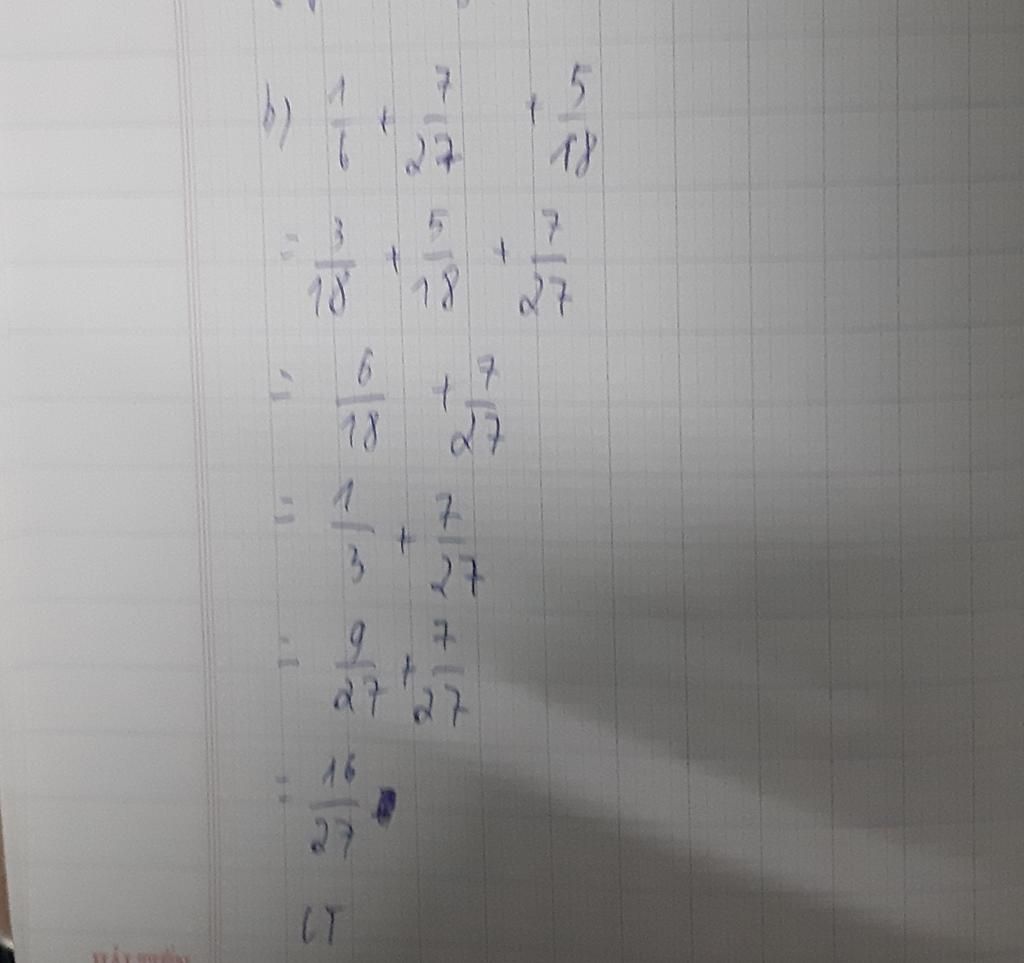 b) 1/6 + 7/27 + 5/18
= 3/18 + 5/18 + 7/27
= 6/18 + 7/27
= 1/3 + 7/27
= 9/27 + 7/27
= 16/27
CT